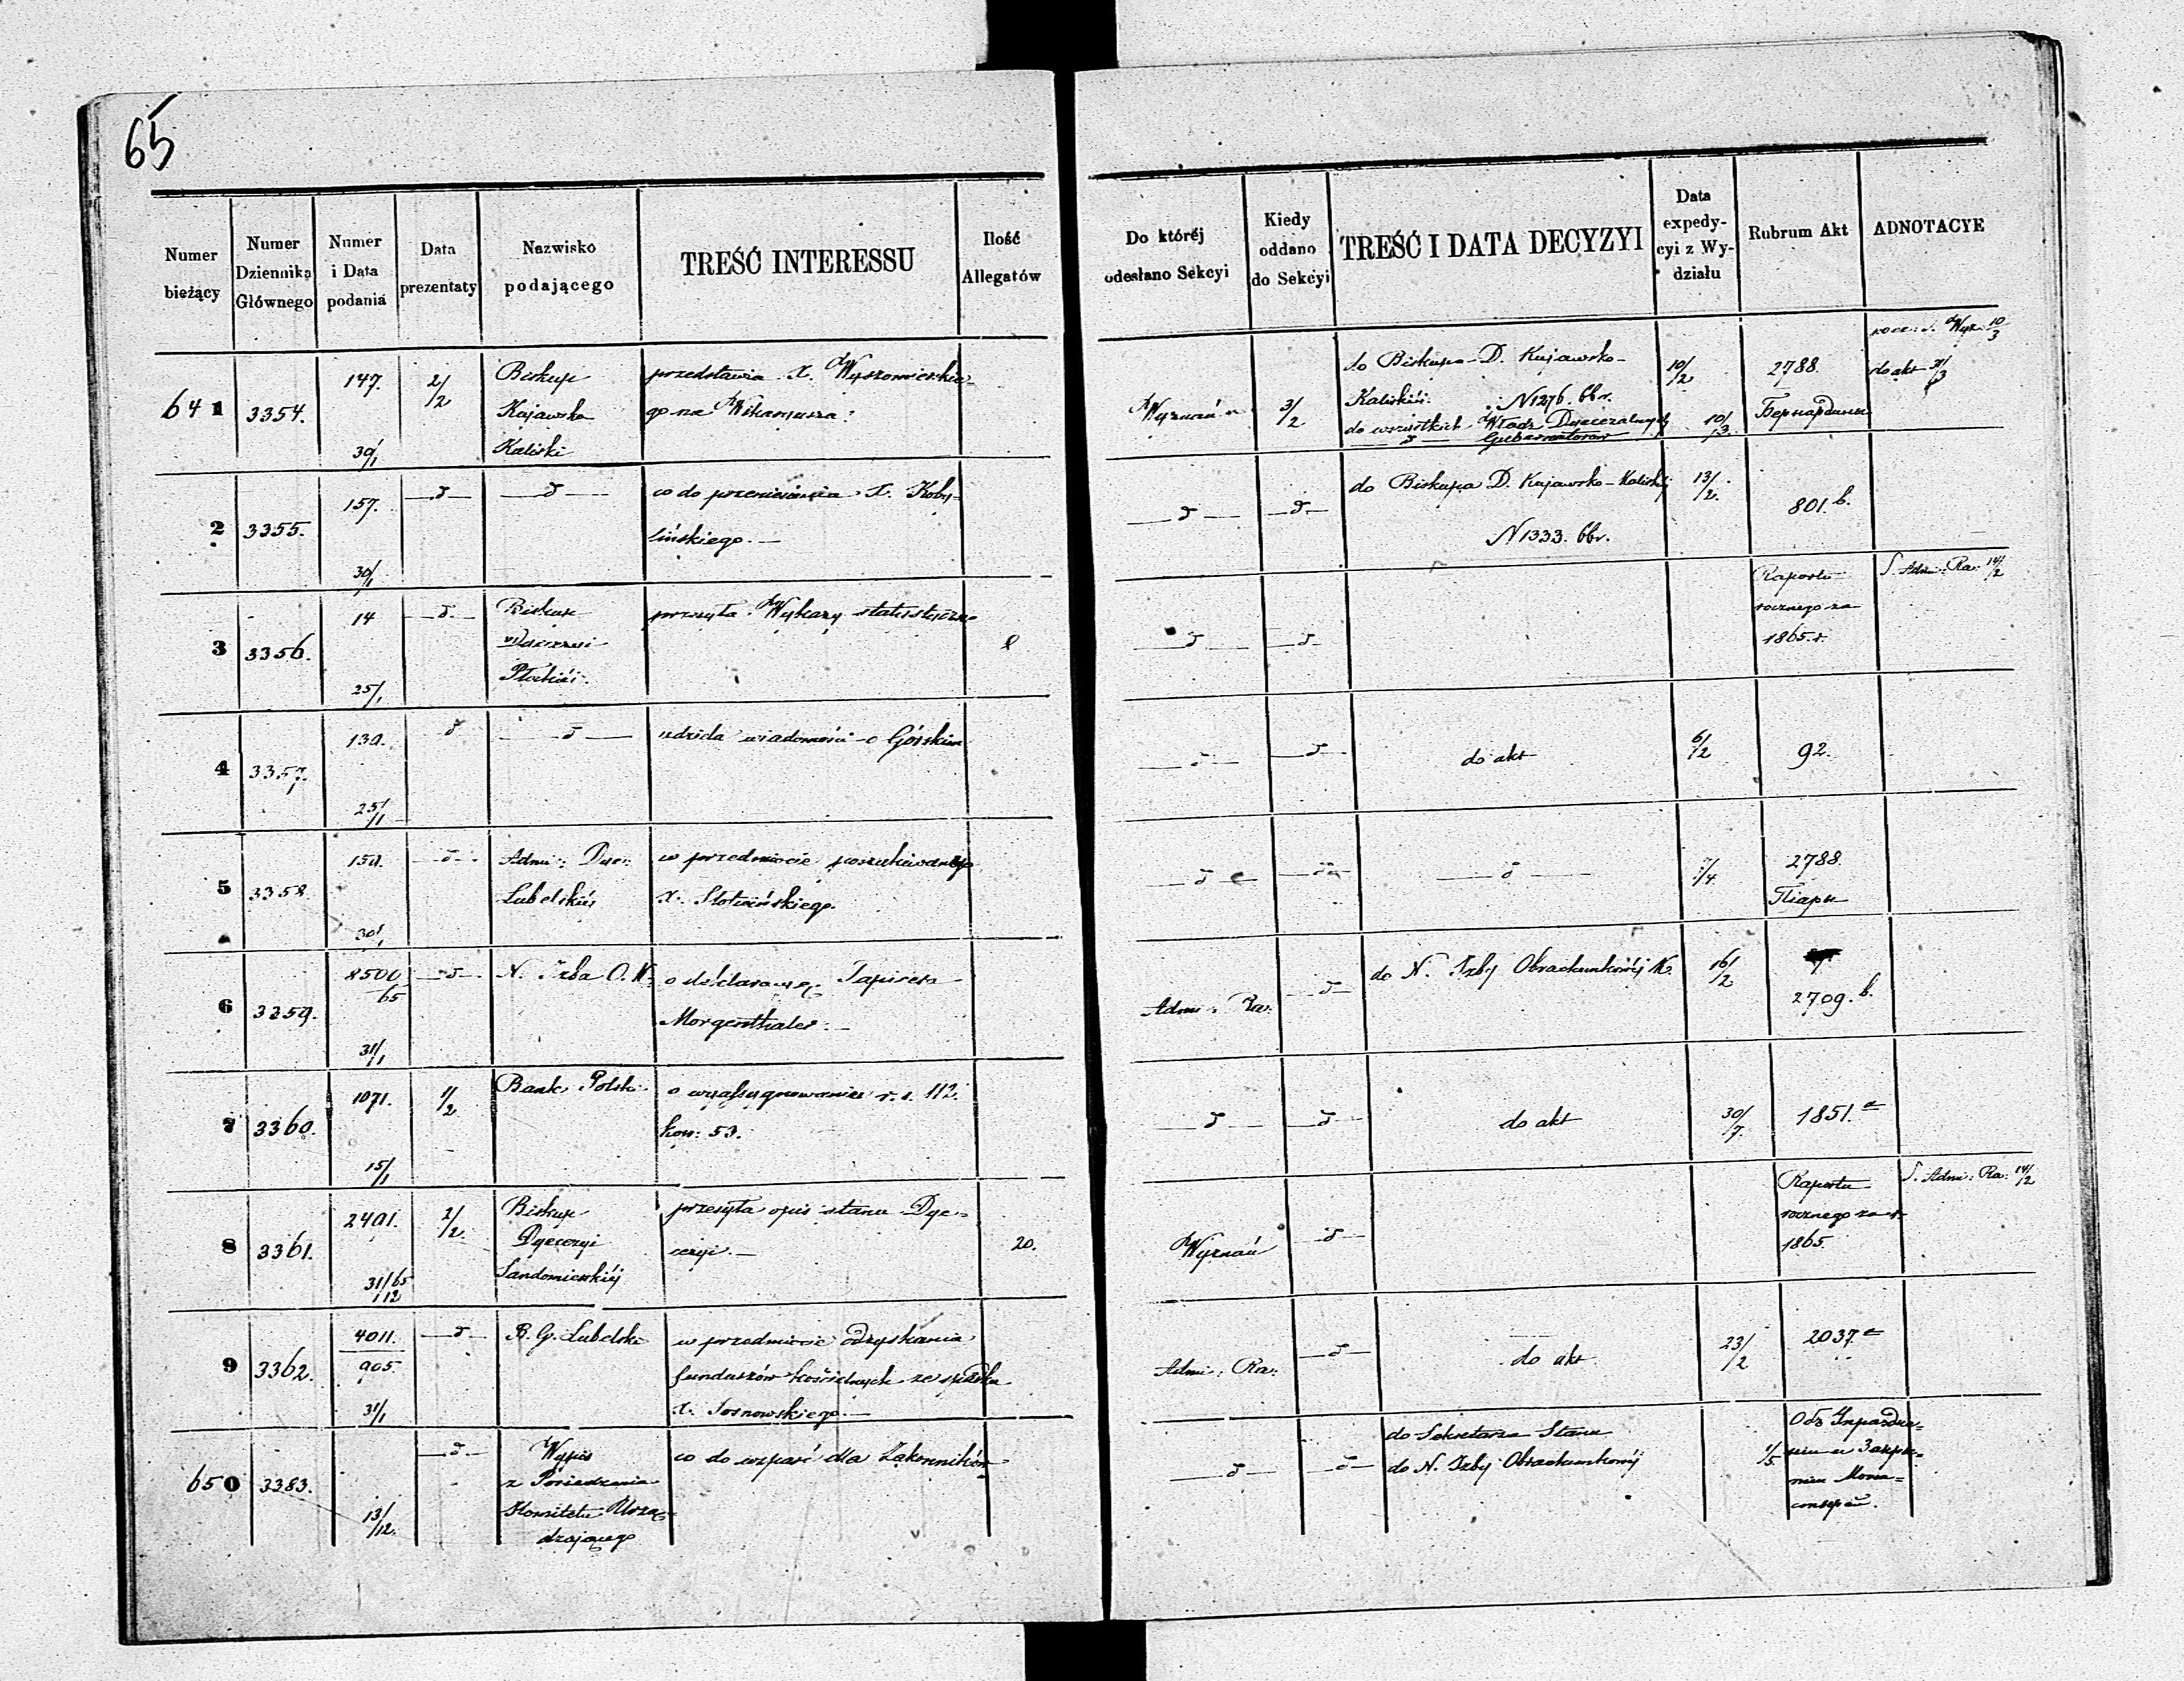 65
Numer bieżący
Numer Dziennika Głównego
Numer i Data podania
Data prezentaty
Nazwisko podającego
TREŚĆ INTERESSU
Ilość Allegatów
Do któréj odesłano Sekcyi
Kiedy oddano do Sekcyi
TREŚĆ I DATA DECYZYI
Data expedycyi z Wydziału
Rubrum Akt
ADNOTACYE
641 3354. 147. 30/1 2/2
Biskup
Kujawsko
Kaliski
przedstawia X. Wyszomierskie-
go na Wikaryusza.
Wyznań 3/2
do Biskupa D. Kujawsko-
Kaliskiéj N 1276. bbr.
do wszystkich Władz Dyecezalnych
— d — Gubernatorów
10/2
10/3.
2788.
Бернардины
Wyz. 10/3
do akt 31/3
2 3355. 157. 30/1 —d— —d—
co do przeniesienia X. Koby-
lińskiego.—
—d— —d—
do Biskupa D. Kujawsko-Kaliskiéj
N 1333. bbr.
13/2.
801. b.
3 3356. 14 25/1 —d—
Biskup
Dyecezyi
Płockiéi.
przesyła Wykazy statystyczne
—d— —d—
Raportu
rocznego za
1865. r.
S. Adm: Ra: 14/2
4 3357. 130. 25/1 d —d—
udziela wiadomości o Górskim
—d— —d—
do akt
6/2
92.
5 3358. 150. 30/1 —d—
Adm: Dye:
Lubelskiéj
w przedmiocie poszukiwanego
X. Słotwińskiego.
—d— —d— —d—
7/4
2788.
Піары
6 3359. 8500/65 31/1 —d—
N. Izba O. K.
o deklaracyę Tapicera
Morgenthaler.—
Adm: Ra: —d—
do N. Izby Obrachunkowéj K.
16/2
2709. b.
7 3360. 1071. 15/1 1/2
Bank Polski
o wyassygnowanie r. s. 112.
kop: 53.
—d— —d—
do akt
30/7.
1851. a
8 3361. 2401. 31/12 65 2/2.
Biskup
Dyecezyi
Sandomierskiéj
przesyła opis stanu Dye-
cezyi.—
20.
Wyznań —d—
Raportu
rocznego za r.
1865.
S. Adm: Ra: 14/2
9 3362. 4011./905. 31/1 —d—
R. G. Lubelski
w przedmiocie odzyskania
funduszów kościelnych ze spadku
X. Sosnowskiego.—
Adm: Ra: —d—
do akt
23/2
2037. a
650 3383. 13/12. —d—
Wypis
z Posiedzenia
Komitetu Urzą-
dzającego
co do wsparć dla Zakonników
—d— —d—
do Sekretarza Stanu
do N. Izby Obrachunkowéj
1/5
Объ Упраздне-
ніи и Закры-
тіи Мона-
стырей.